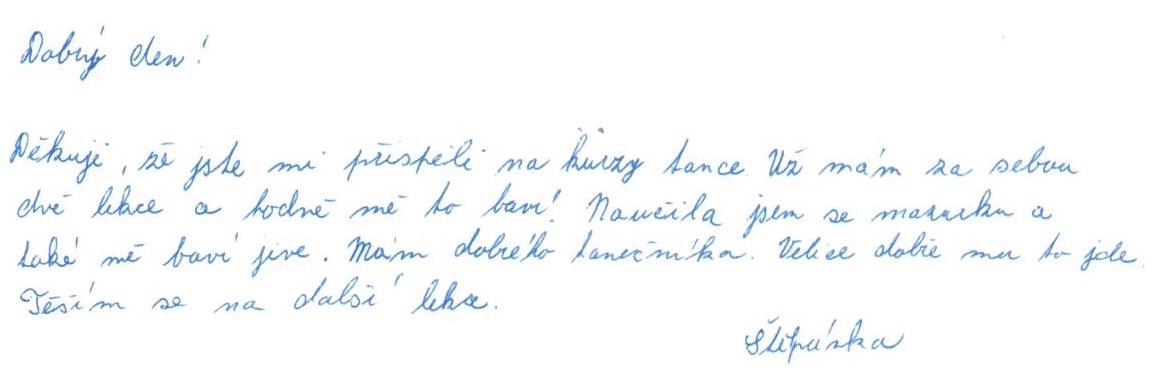 Dobrý den!
Děkuji, že jste mi přispěli na kurzy tance. Už mám za sebou
dvě lekce a hodně mě to baví! Naučila jsem se mazurku a
také mě baví jive. Mám dobrého tanečníka. Velice dobře mu to jde.
Těším se na další lekce.
Štěpánka